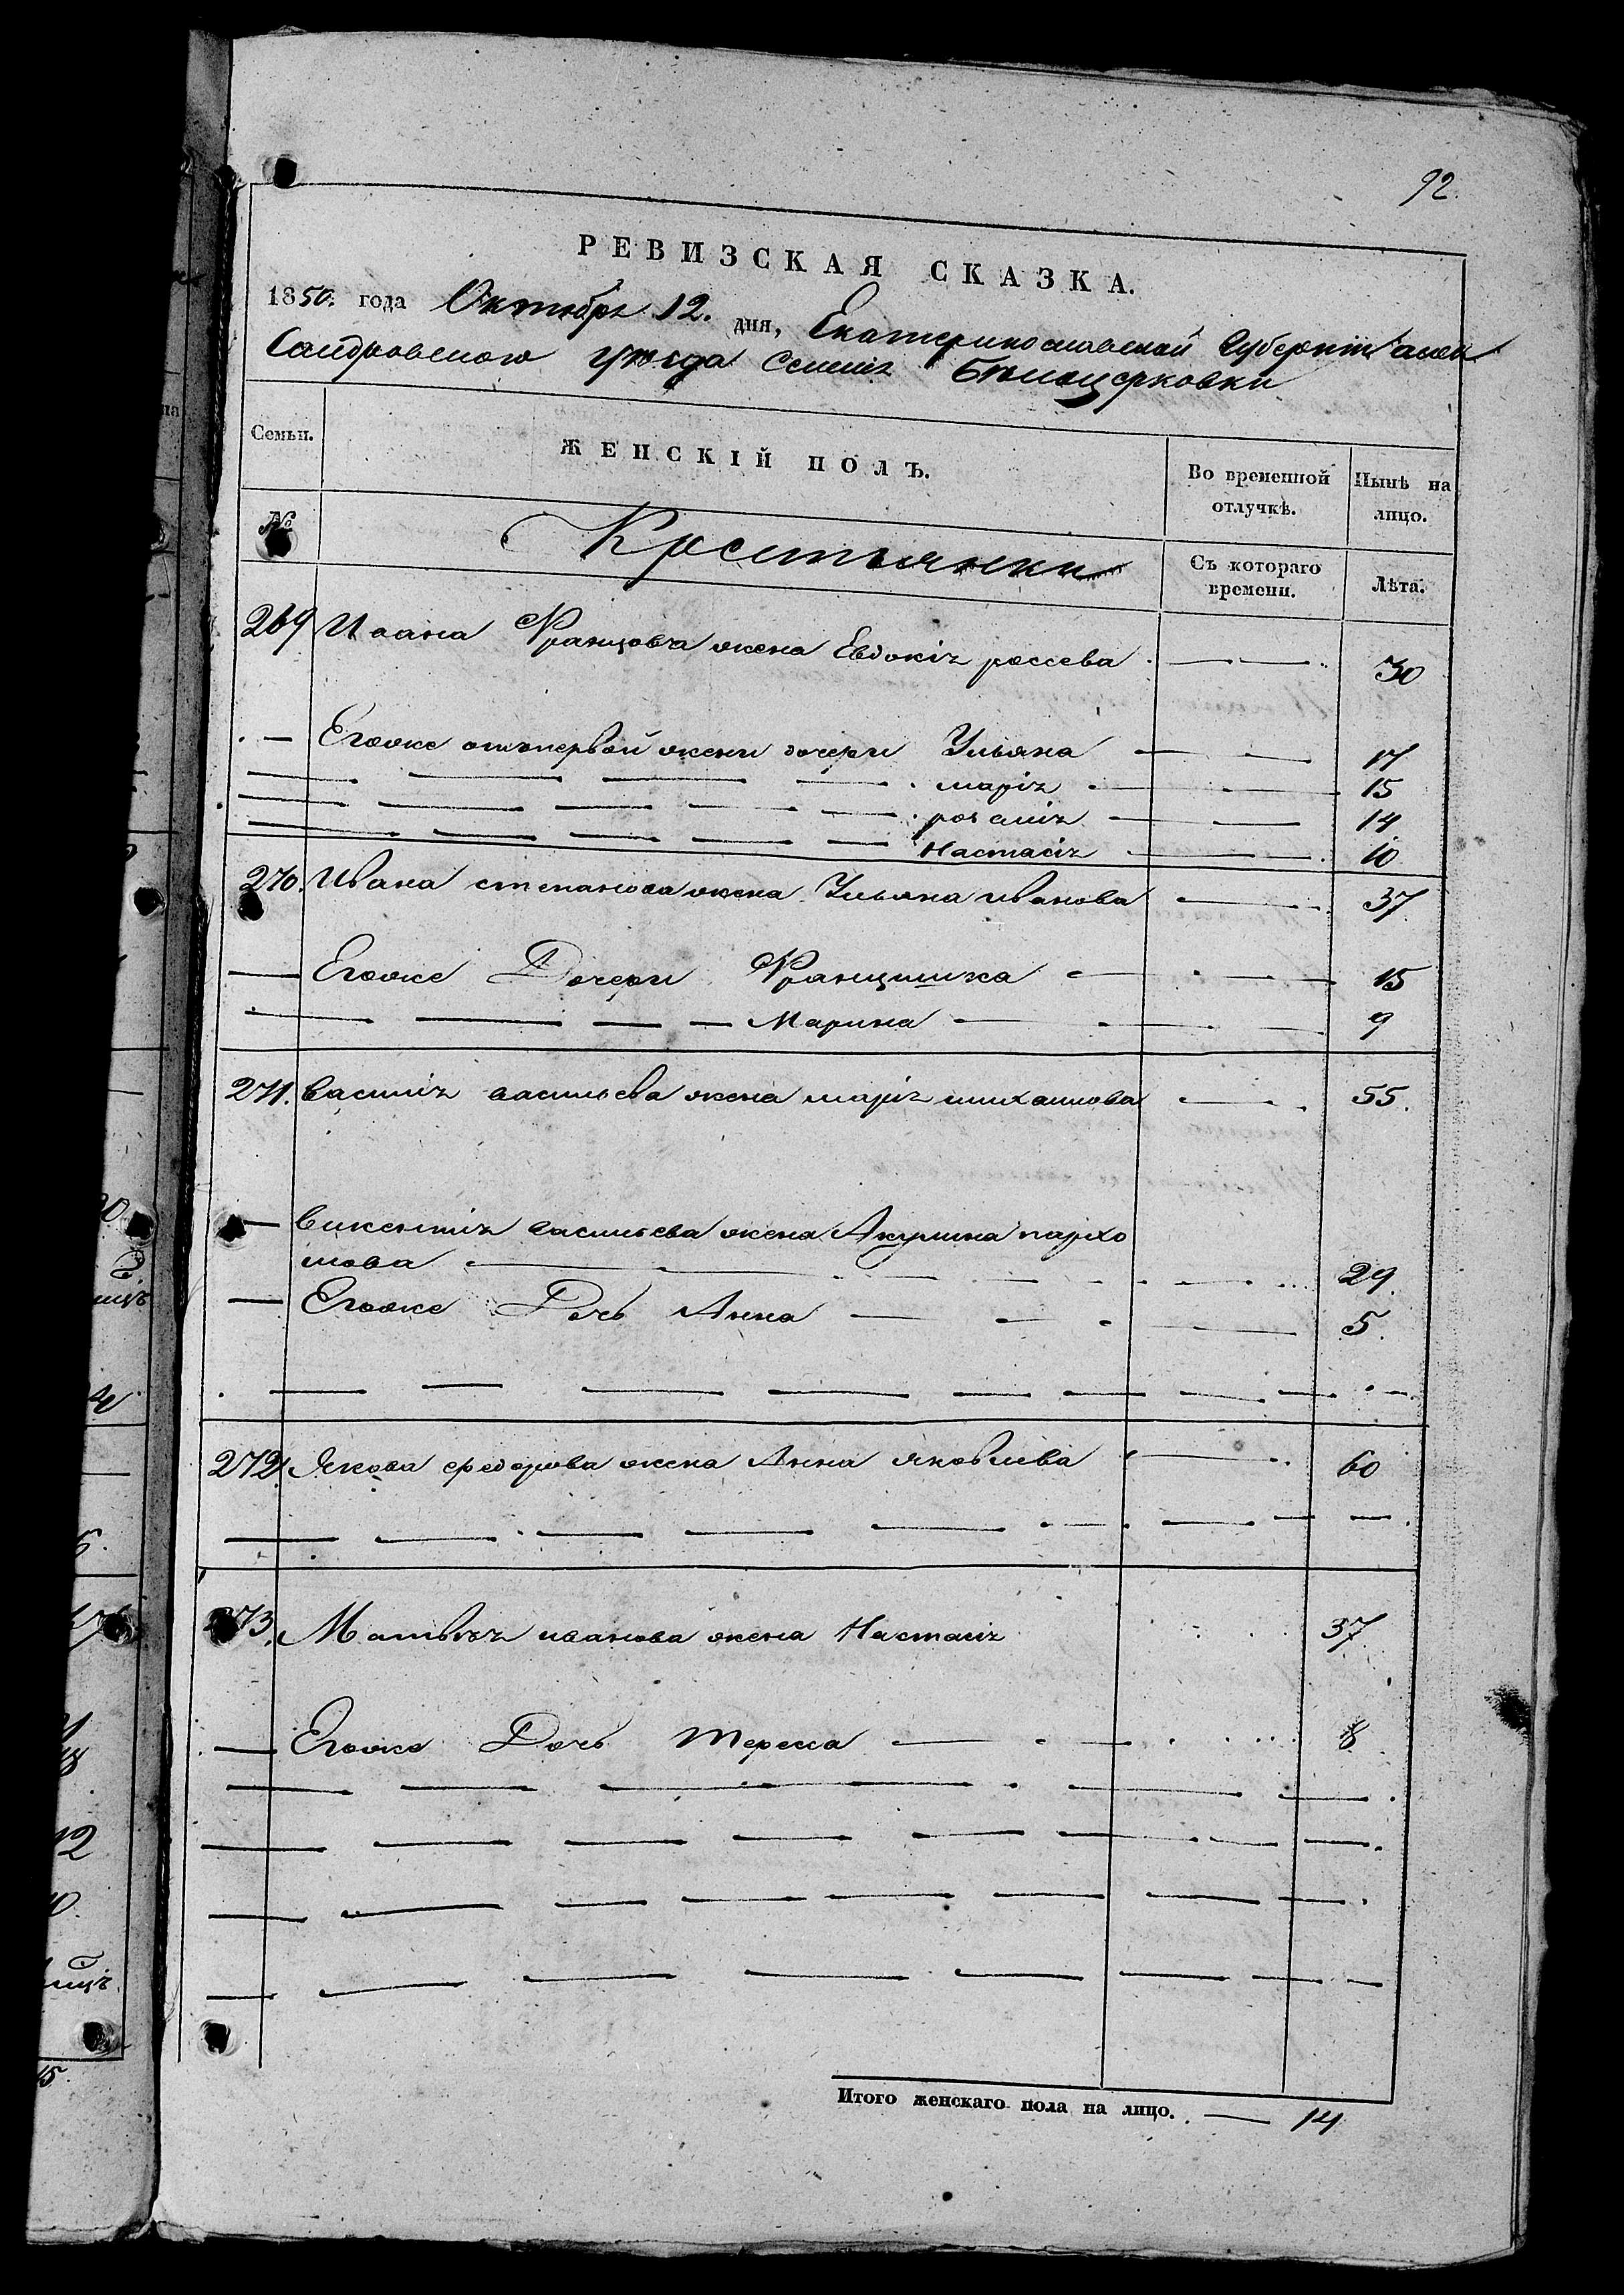 92.
РЕВИЗСКАЯ СКАЗКА.
1850. года Октября 12. дня, Екатеринославской Губерніи Алек
сандровского уѣзда Селенія Бѣлоцерковки
Семьи. ЖЕНСКІЙ ПОЛЪ. Во временной отлучкѣ. Нынѣ на лицо.
№ Крестьянки Съ котораго времени. Лѣта.
269 Ивана Францовча жена Евдокія 30
— Егоже отъ первой жени дочери Ульяна 17
марія 15
розалія 14
Настасія 10
270. Ивана степанова жена Ульяна иванова 37
— Егоже Дочери Францишка 15
Марина 9
271. Василія васильева жена марія михайлова 55.
— Викентія васильева жена Акулина пархо
мова 29.
— Егоже Дочь Анна 5.
272. Якова федорова жена Анна яковлева 60
273. Матвѣя иванова жена Настасія 37
— Егоже Дочь тересса 8
Итого женскаго пола на лицо. — 14